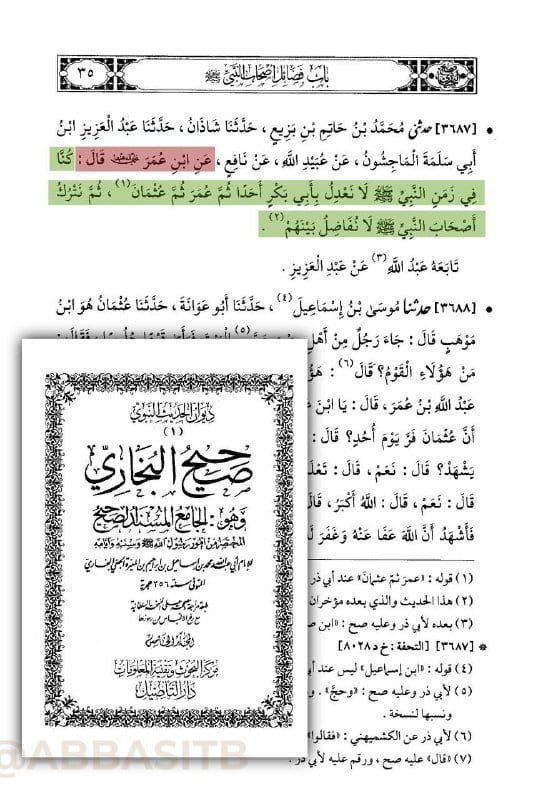 باب فضائل أصحاب النبي ﷺ
٣٥
• [٣٦٨٧] حدثني مُحَمَّدُ بْنُ حَاتِمِ بْنِ بَزِيعٍ ، حَدَّثَنَا شَاذَانُ ، حَدَّثَنَا عَبْدُ الْعَزِيزِ ابْنُ
أَبِي سَلَمَةَ الْمَاجِشُونُ ، عَنْ عُبَيْدِ اللَّهِ ، عَنْ نَافِعٍ ، عَنِ ابْنِ عُمَرَ رضي الله عنهما قَالَ : كُنَّا
فِي زَمَنِ النَّبِيِّ ﷺ لَا نَعْدِلُ بِأَبِي بَكْرٍ أَحَدًا ثُمَّ عُمَرَ ثُمَّ عُثْمَانَ(١) ، ثُمَّ نَتْرُكُ
أَصْحَابَ النَّبِيِّ ﷺ لَا نُفَاضِلُ بَيْنَهُمْ(٢) .
تَابَعَهُ عَبْدُ اللَّهِ(٣) عَنْ عَبْدِ الْعَزِيزِ .
• [٣٦٨٨] حدثنا مُوسَى بْنُ إِسْمَاعِيلَ(٤) ، حَدَّثَنَا أَبُو عَوَانَةَ ، حَدَّثَنَا عُثْمَانُ هُوَ ابْنُ
مَوْهَبٍ قَالَ : جَاءَ رَجُلٌ مِنْ أَهْلِ
مَنْ هَؤُلَاءِ الْقَوْمُ؟ قَالَ(٦) :
عَبْدُ اللَّهِ بْنُ عُمَرَ ، قَالَ : يَا ابْنَ
أَنَّ عُثْمَانَ فَرَّ يَوْمَ أُحُدٍ؟ قَالَ
يَشْهَدْ؟ قَالَ : نَعَمْ ، قَالَ : تَعْلَمُ
قَالَ : نَعَمْ ، قَالَ : اللَّهُ أَكْبَرُ ، قَالَ
فَأَشْهَدُ أَنَّ اللَّهَ عَفَا عَنْهُ وَغَفَرَ
(١) قوله : «عمر ثم عثمان» عند أبي ذر
(٢) هذا الحديث والذي بعده مؤخران
(٣) بعده لأبي ذر وعليه صح : «ابن
* [٣٦٨٧] [التحفة : خ د ٨٠٢٨]
(٤) قوله : «ابن إسماعيل» ليس عند أبي
(٥) لأبي ذر وعليه صح : «وحج» .
ونسبها لنسخة .
(٦) لأبي ذر عن الكشميهني : «فقالوا»
(٧) «قال» عليه صح ، ورقم عليه لأبي ذر .
ديوان الحديث النبوي
(١)
صحيح البخاري
وهو : الجامع المسند الصحيح
المختصر من أمور رسول الله ﷺ وسننه وأيامه
للإمام أبي عبد الله محمد بن إسماعيل بن إبراهيم بن المغيرة الجعفي البخاري
المتوفى سنة ٢٥٦ هجرية
المجلد الخامس
مركز البحوث وتقنية المعلومات
دار التأصيل
@ABBASITB